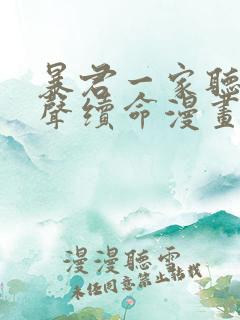 暴君一家聽
聲續命漫畫
漫漫聽雲
未经同意禁止转载